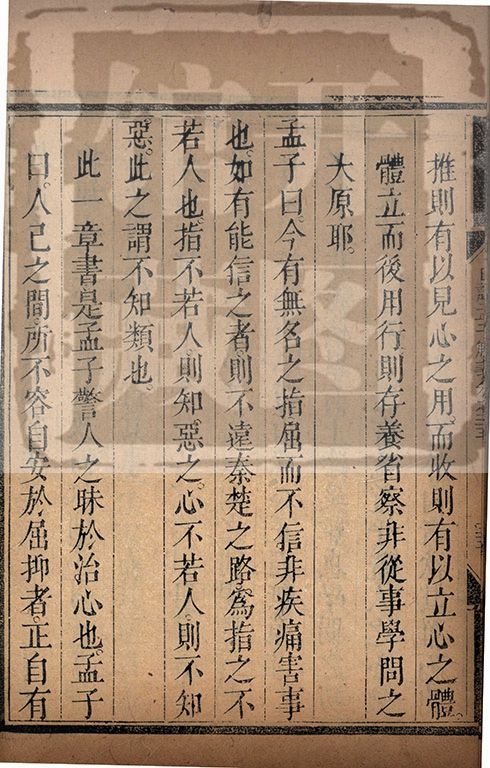 推則有以見心之用。而收則有以立心之體。
體立而後用行則存養省察非從事學問之
大原耶。
孟子曰。今有無名之指屈而不信非疾痛害事
也。如有能信之者。則不遠秦楚之路。為指之不
若人也。指不若人。則知惡之。心不若人。則不知
惡。此之謂不知類也。
此一章書是孟子警人之昧於治心也。孟子
曰。人己之間。所不容自安於屈抑者。正自有